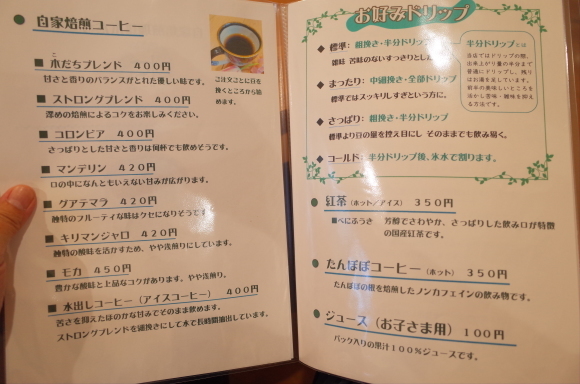 自家焙煎コーヒー
ご注文ごとに豆を
挽くところから始
めます。
こ
木だちブレンド 400円
甘さと香りのバランスがとれた優しい味です。
ストロングブレンド 400円
深めの焙煎によるコクをお楽しみください。
コロンビア 400円
さっぱりとした甘さと香りは何杯でも飲めそうです。
マンデリン 420円
口の中になんともいえない甘みが広がります。
グアテマラ 420円
独特のフルーティな味はクセになりそうです
キリマンジャロ 420円
独特の酸味を活かすため、やや浅煎りにしています。
モカ 450円
豊かな酸味と上品なコクがあります。やや浅煎り。
水出しコーヒー(アイスコーヒー) 400円
苦さを抑えたほのかな甘みでそのまま飲めます。
ストロングブレンドを細挽きにして水で長時間抽出しています。
お好みドリップ
標準: 粗挽き・半分ドリップ
雑味 苦味のないすっきりとした
まったり: 中細挽き・全部ドリップ
標準ではスッキリしすぎという方に。
さっぱり: 粗挽き・半分ドリップ
標準より豆の量を控え目にし そのままでも飲み易く。
コールド: 半分ドリップ後、氷水で割ります。
半分ドリップとは
当店ではドリップの際、
出来上がり量の半分まで
普通にドリップし、残り
はお湯を足しています。
前半の美味しいところを
活かし苦味・雑味を抑え
る方法です。
紅茶(ホット/アイス) 350円
べにふうき 芳醇でさわやか、さっぱりした飲み口が特徴
の国産紅茶です。
たんぽぽコーヒー(ホット) 350円
たんぽぽの根を焙煎したノンカフェインの飲み物です。
ジュース(お子さま用) 100円
パック入りの果汁100%ジュースです。